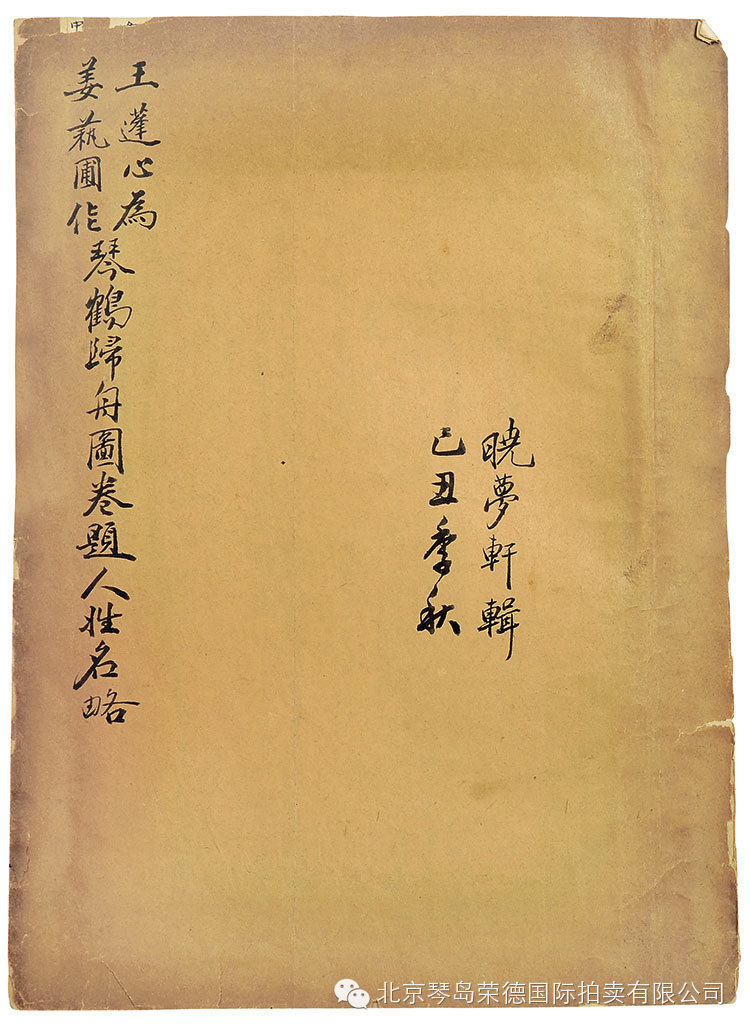 王蓬心為
姜萟圃作
琴鶴歸舟圖卷題人姓名略
曉夢軒輯
己丑季秋
北京琴岛荣德国际拍卖有限公司